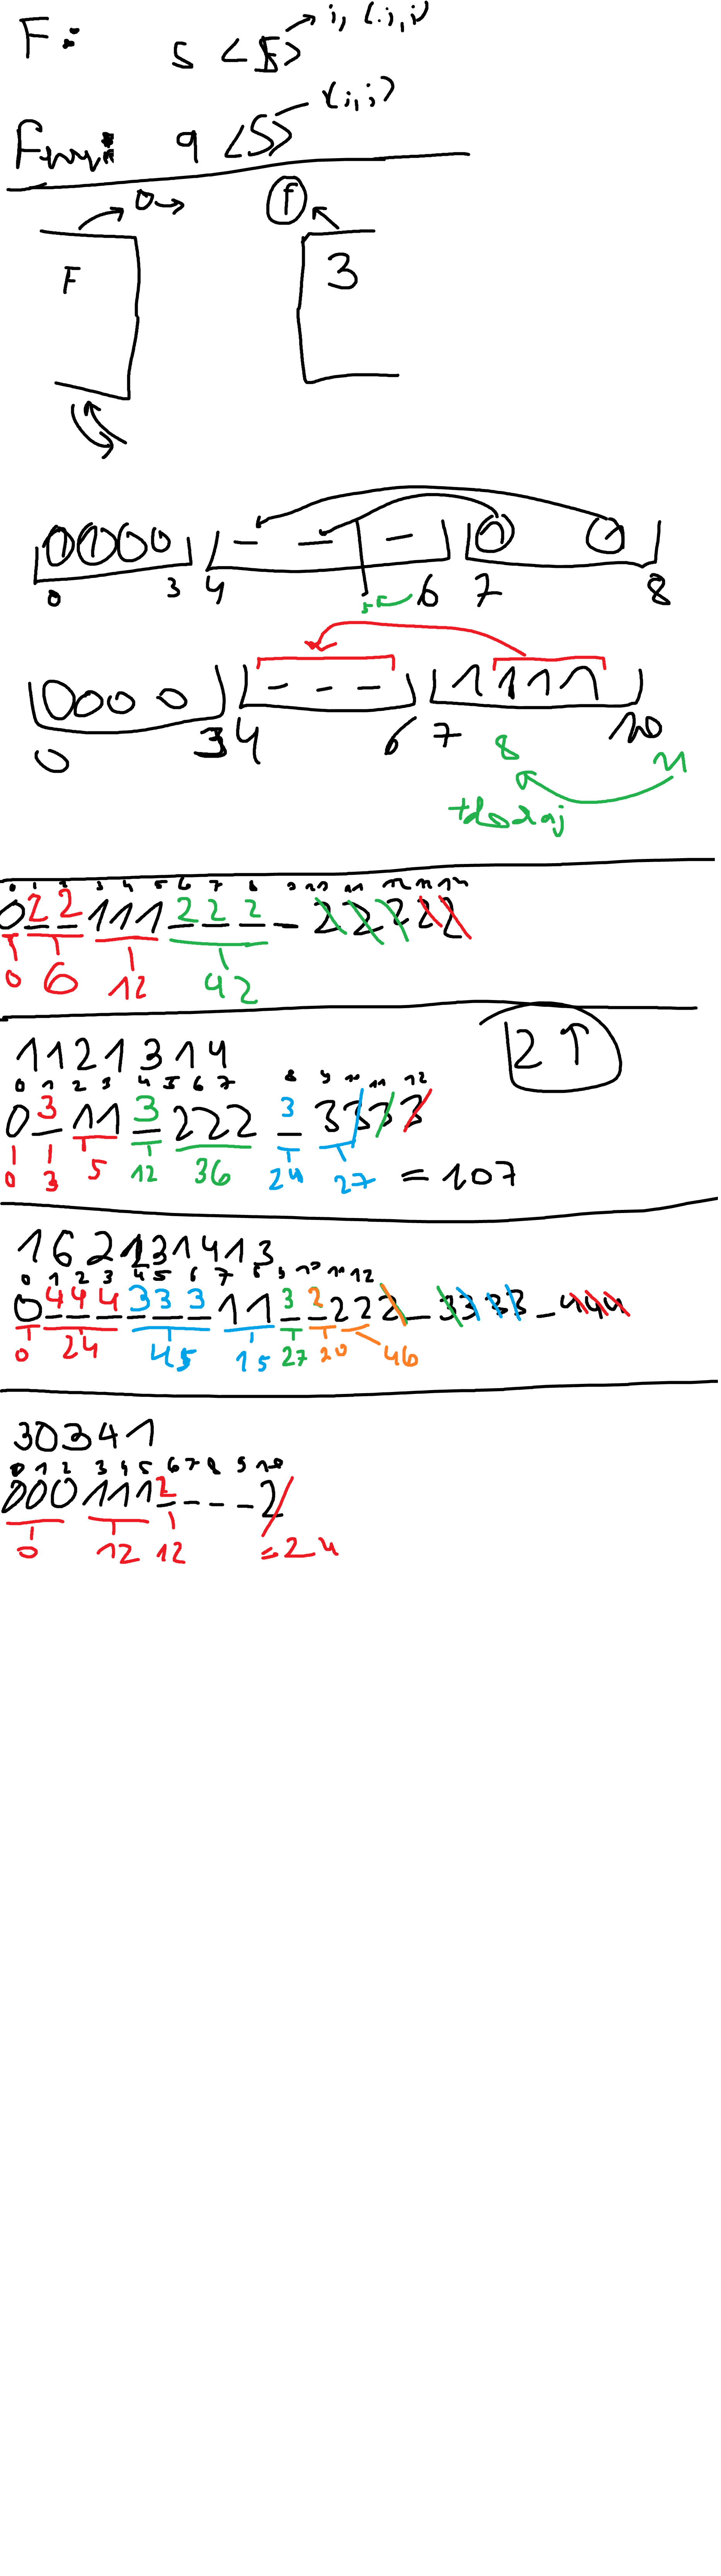 F: s <F> i, (i,i)
q <S> (i,i)
0 f
F 3
0 0 0 0 - - - 1 1
0 3 4 5 6 7 8
0 0 0 0 - - - 1 1 1 1
0 3 4 6 7 8 10 11
0 1 2 3 4 5 6 7 8 9 10 11 12 13 14
0 2 2 1 1 1 2 2 2 - 2 2 2 2 2
0 6 12 42
11 2 1 3 1 4 2 ↑
0 1 2 3 4 5 6 7 8 9 10 11 12
0 3 1 1 3 2 2 2 3 3 3 3 3
0 3 5 12 36 24 27 = 107
1 6 2 1 3 1 4 1 3
0 1 2 3 4 5 6 7 8 9 10 11 12
0 4 4 4 3 3 3 1 1 3 2 2 2 2 - 3 3 3 3 - 4 4 4
0 24 45 15 27 20 46
3 0 3 4 1
0 1 2 3 4 5 6 7 8 9 10
0 0 0 1 1 1 2 - - - 2
0 12 12 = 24